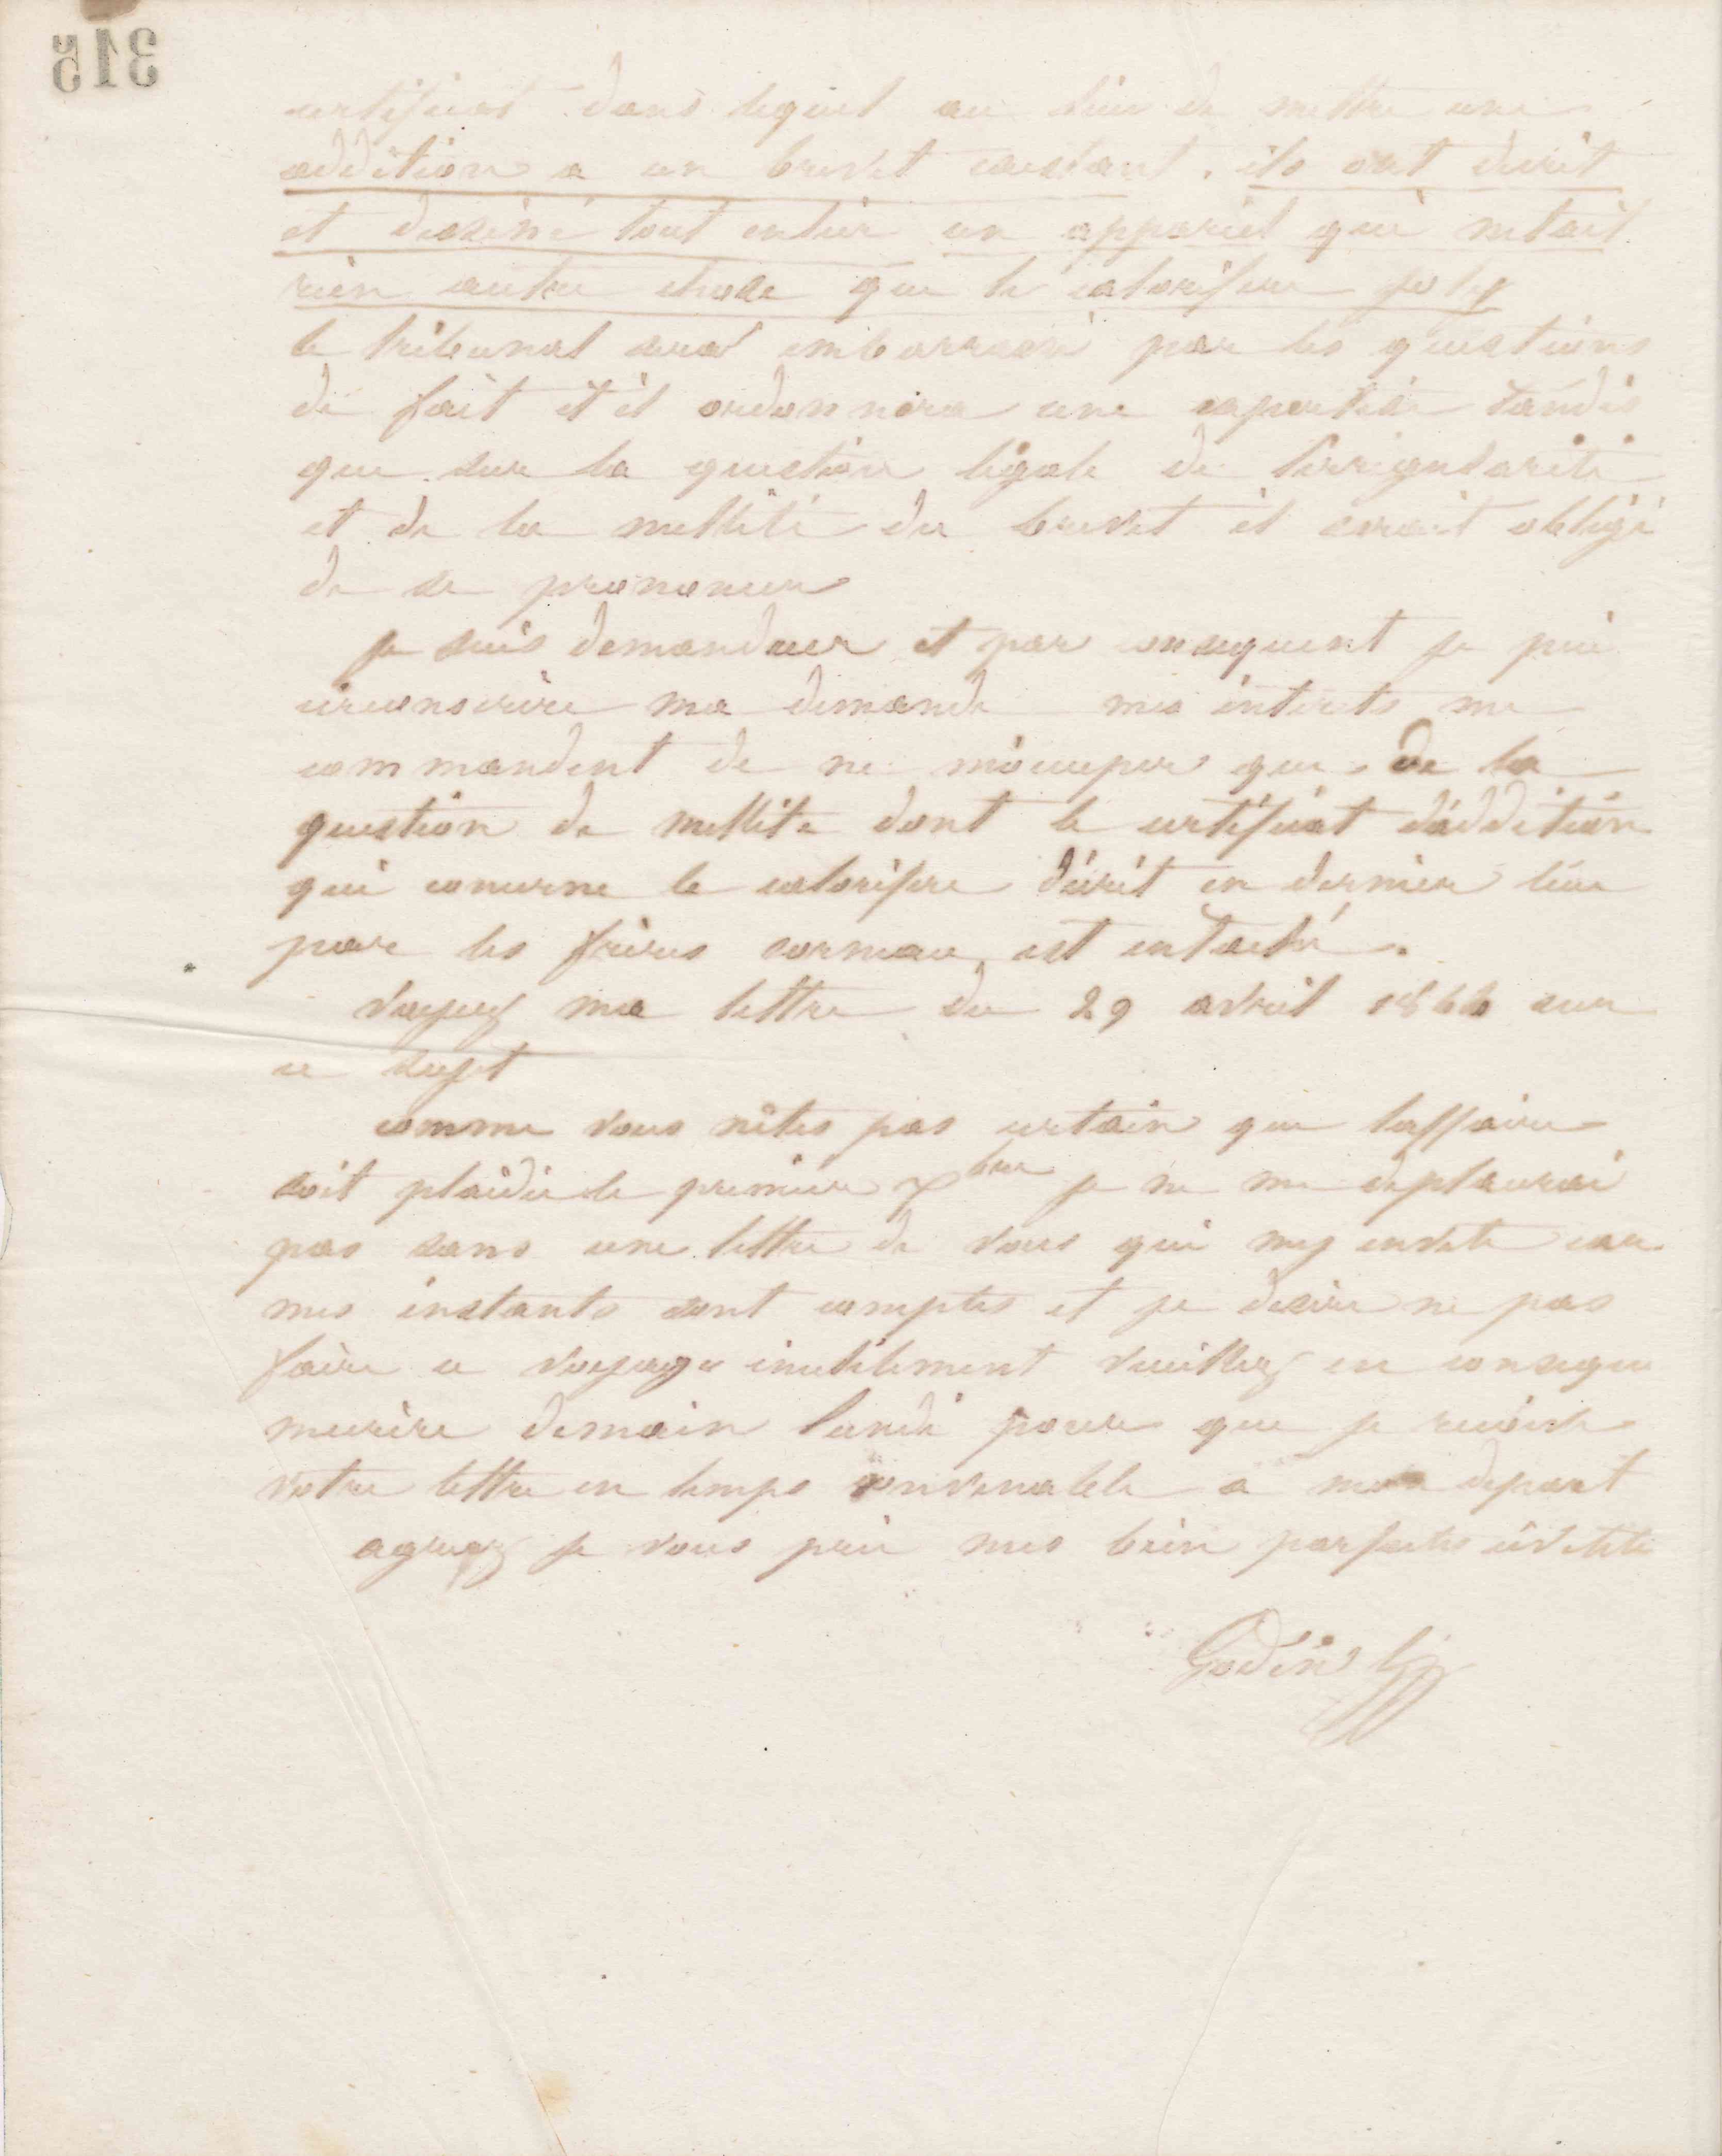 315
certificat dans lequel au lieu de mettre une
addition a un brevet existant. ils ont decrit
et dessiné tout entier un appareil qui netait
rien autre chose que le calorifere joly
le tribunal sera embarrassé par les questions
de fait et il ordonnera une expertise tandis
que sur la question légale de lirrégularité
et de la nullité du brevet il serait obligé
de se prononcer
je suis demandeur et par consequent je puis
circonscrire ma demande mes interets me
commandent de ne m'occuper que de la
question de nullite dont le certificat d'addition
qui concerne le calorifere décrit en dernier lieu
par les frères corneau est entaché.
voyez ma lettre du 29 avril 1862 sur
ce sujet
comme vous nêtes pas certain que laffaire
soit plaidée le premier xbre je ne me deplacerai
pas sans une lettre de vous qui my invite car
mes instants sont comptes et je desire ne pas
faire ce voyage inutilement veuillez en conseque
mecrire demain lundi pour que je recoive
votre lettre en temps convenable a mon depart
agreez je vous prie mes bien parfaites civilités
Godin